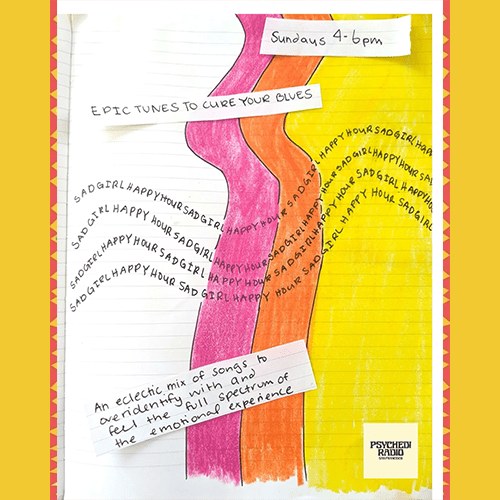 Sundays 4-6pm
EPIC TUNES TO CURE YOUR BLUES
SAD GIRL HAPPY HOUR SAD GIRL HAPPY HOUR SAD GIRL HAPPY HOUR SAD GIRL HAPP
SAD GIRL HAPPY HOUR SAD GIRL HAPPY HOUR SAD GIRL HAPPY HOUR SAD GIRL HAPPY
SAD GIRL HAPPY HOUR SAD GIRL HAPPY HOUR SAD GIRL HAPPY HOUR SAD GIRL HAPPY
SAD GIRL HAPPY HOUR SAD GIRL HAPPY HOUR SAD GIRL HAPPY HOUR SAD GIRL
An eclectic mix of songs to
overidentify with and
feel the full spectrum of
the emotional experience
PSYCHED!
RADIO